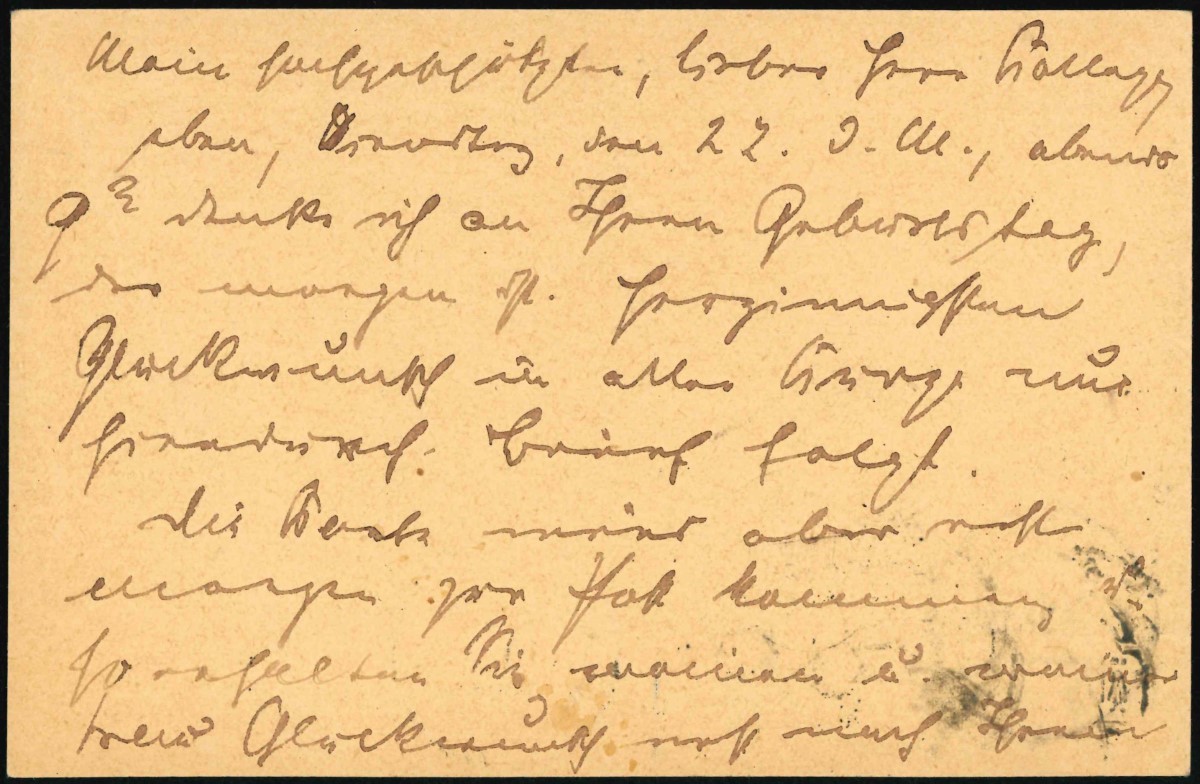 Mein hochgeschätzter, lieber Herr Kollege,
eben, Dienstag, den 22. d. M., abends
9 denke ich an Ihren Geburtstag,
der morgen ist. Herzinnigsten
Glückwunsch in aller Kürze nur
hierdurch. Brief folgt.
Die Karte wird aber erst
morgen zur Post kommen, u.
so erhalten Sie meinen u. meiner
Glückwunsch erst nach Ihrem